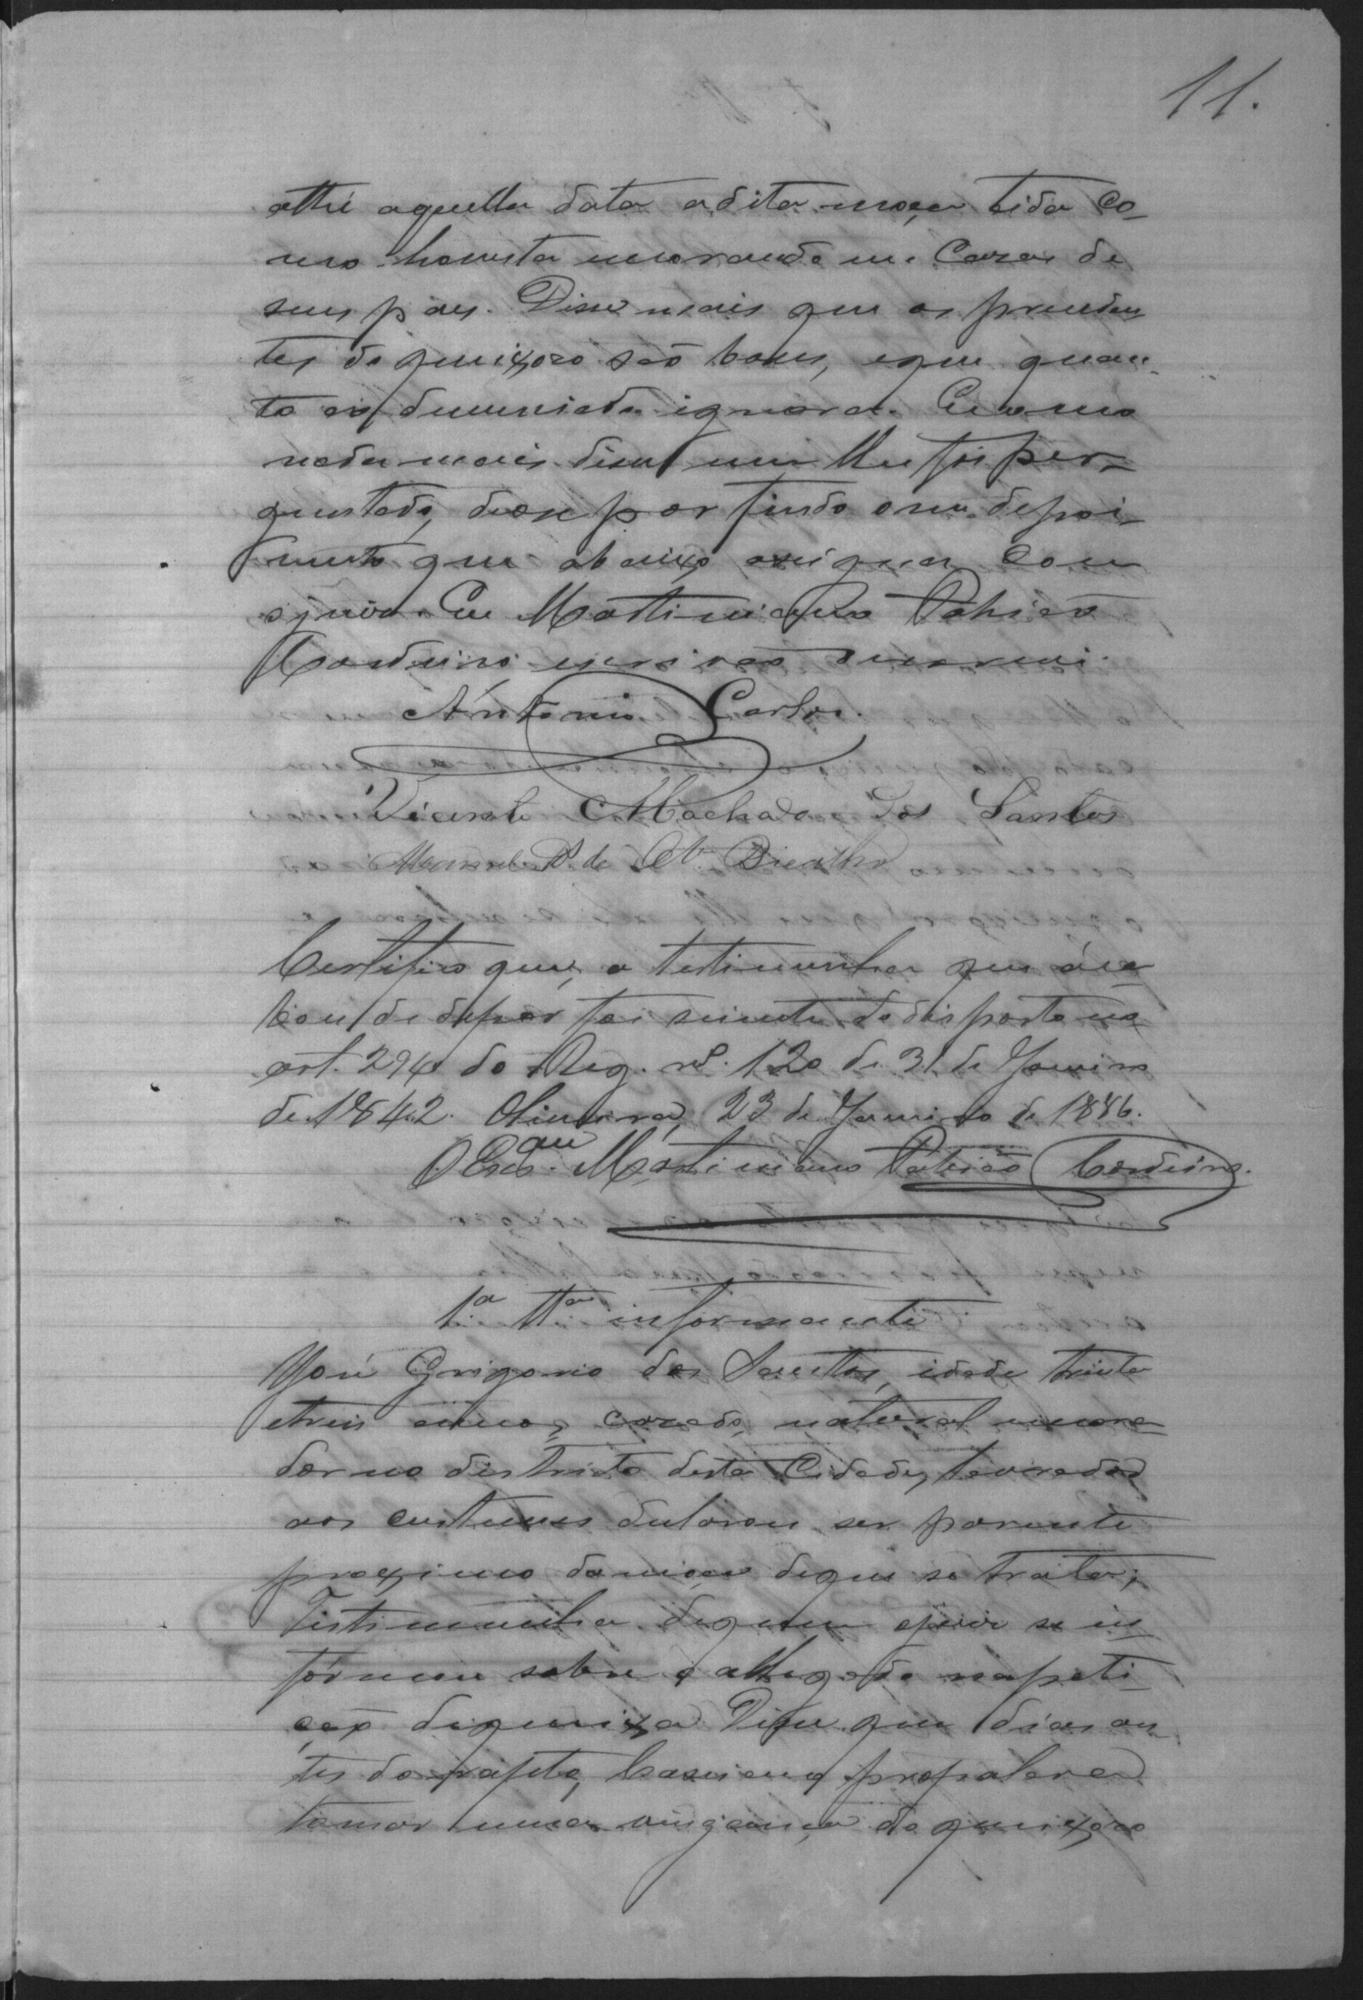 11.
athé aquella data a dita moça tida co-
mo honesta morando em Caza de
seus paes. Disse mais que os preceden
tes do queixoso são bons, e que quan-
to ao denunciado ignora. E como
nada mais disse nem lhe foi per-
guntado, deose por findo o seu depoi-
mento que abaixo assigna com
o juiz. Eu Martimiano Patricio
Cordeiro escrivão o escrevi.
Antonio Carlos.
Vicente Machado dos Santos
Manoel
Certifico que, a testimunha que aca-
bou de depor foi sciente do disposto no
art. 294 do Reg. nº. 120 de 31 de Janeiro
de 1842. Oliveira, 23 de Janeiro de 1886.
O Escam. Martimiano Patricio Cordeiro.
1.a tta informante
José Grigorio dos Santos, idade trinta
e treis annos, cazado, natural e mora-
dor no districto desta Cidade, lavrador
aos custumes declarou ser parente
proximo da moça de que se trata;
Testimunha de quem o juiz se in
formou sobre o allegado na peti
ção de queixa Disse que dias an
tes do rapto, Cassiano propalara
tomar uma vingança do queixoso